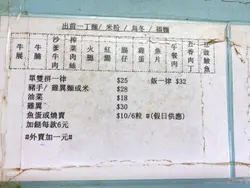 出前一丁麵/米粉/烏冬/瀨麵
牛展
牛腩
沙爹牛肉
榨菜肉絲
火腿
紅腸
腸仔
雞蛋
魚片
午餐肉
五香肉丁
豆豉鯪魚
單雙拼一律 $25 飯一律 $32
豬手/雞翼麵或米 $28
油菜 $18
雞翼 $30
魚蛋或燒賣 $10/6粒 #(假日供應)
加餸每款6元
#外賣加一元#